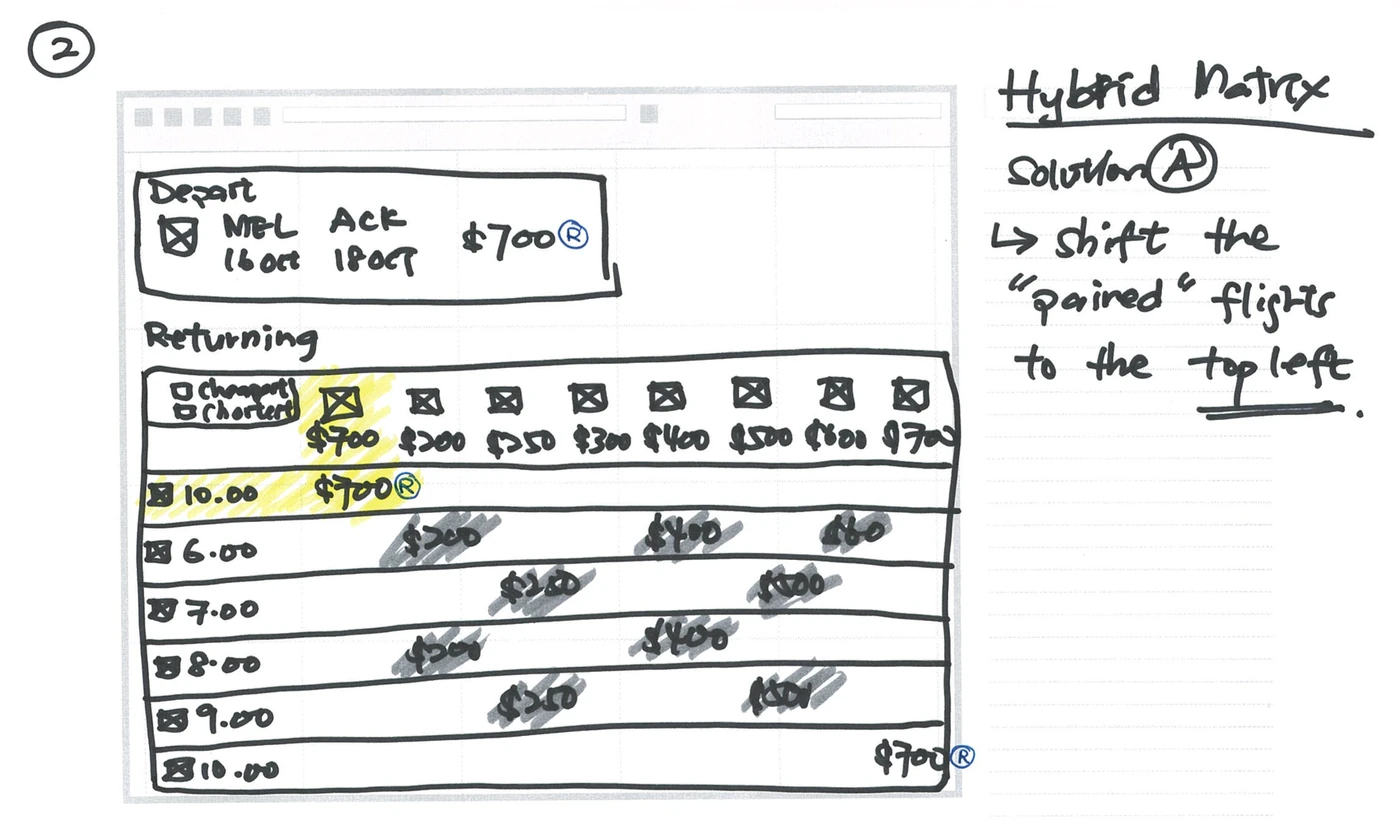 2
Hybrid Matrix
Solution A
↳ shift the
"paired" flights
to the top left.
Depart
MEL ACK
16 Oct 18 OCT
$700 R
Returning
Cheapest
Shortest
$700 $200 $250 $300 $400 $500 $600 $700
10.00 $700 R
6.00 $200 $400 $60
7.00 $250 $500
8.00 $200 $400
9.00 $250 $501
10.00 $700 R